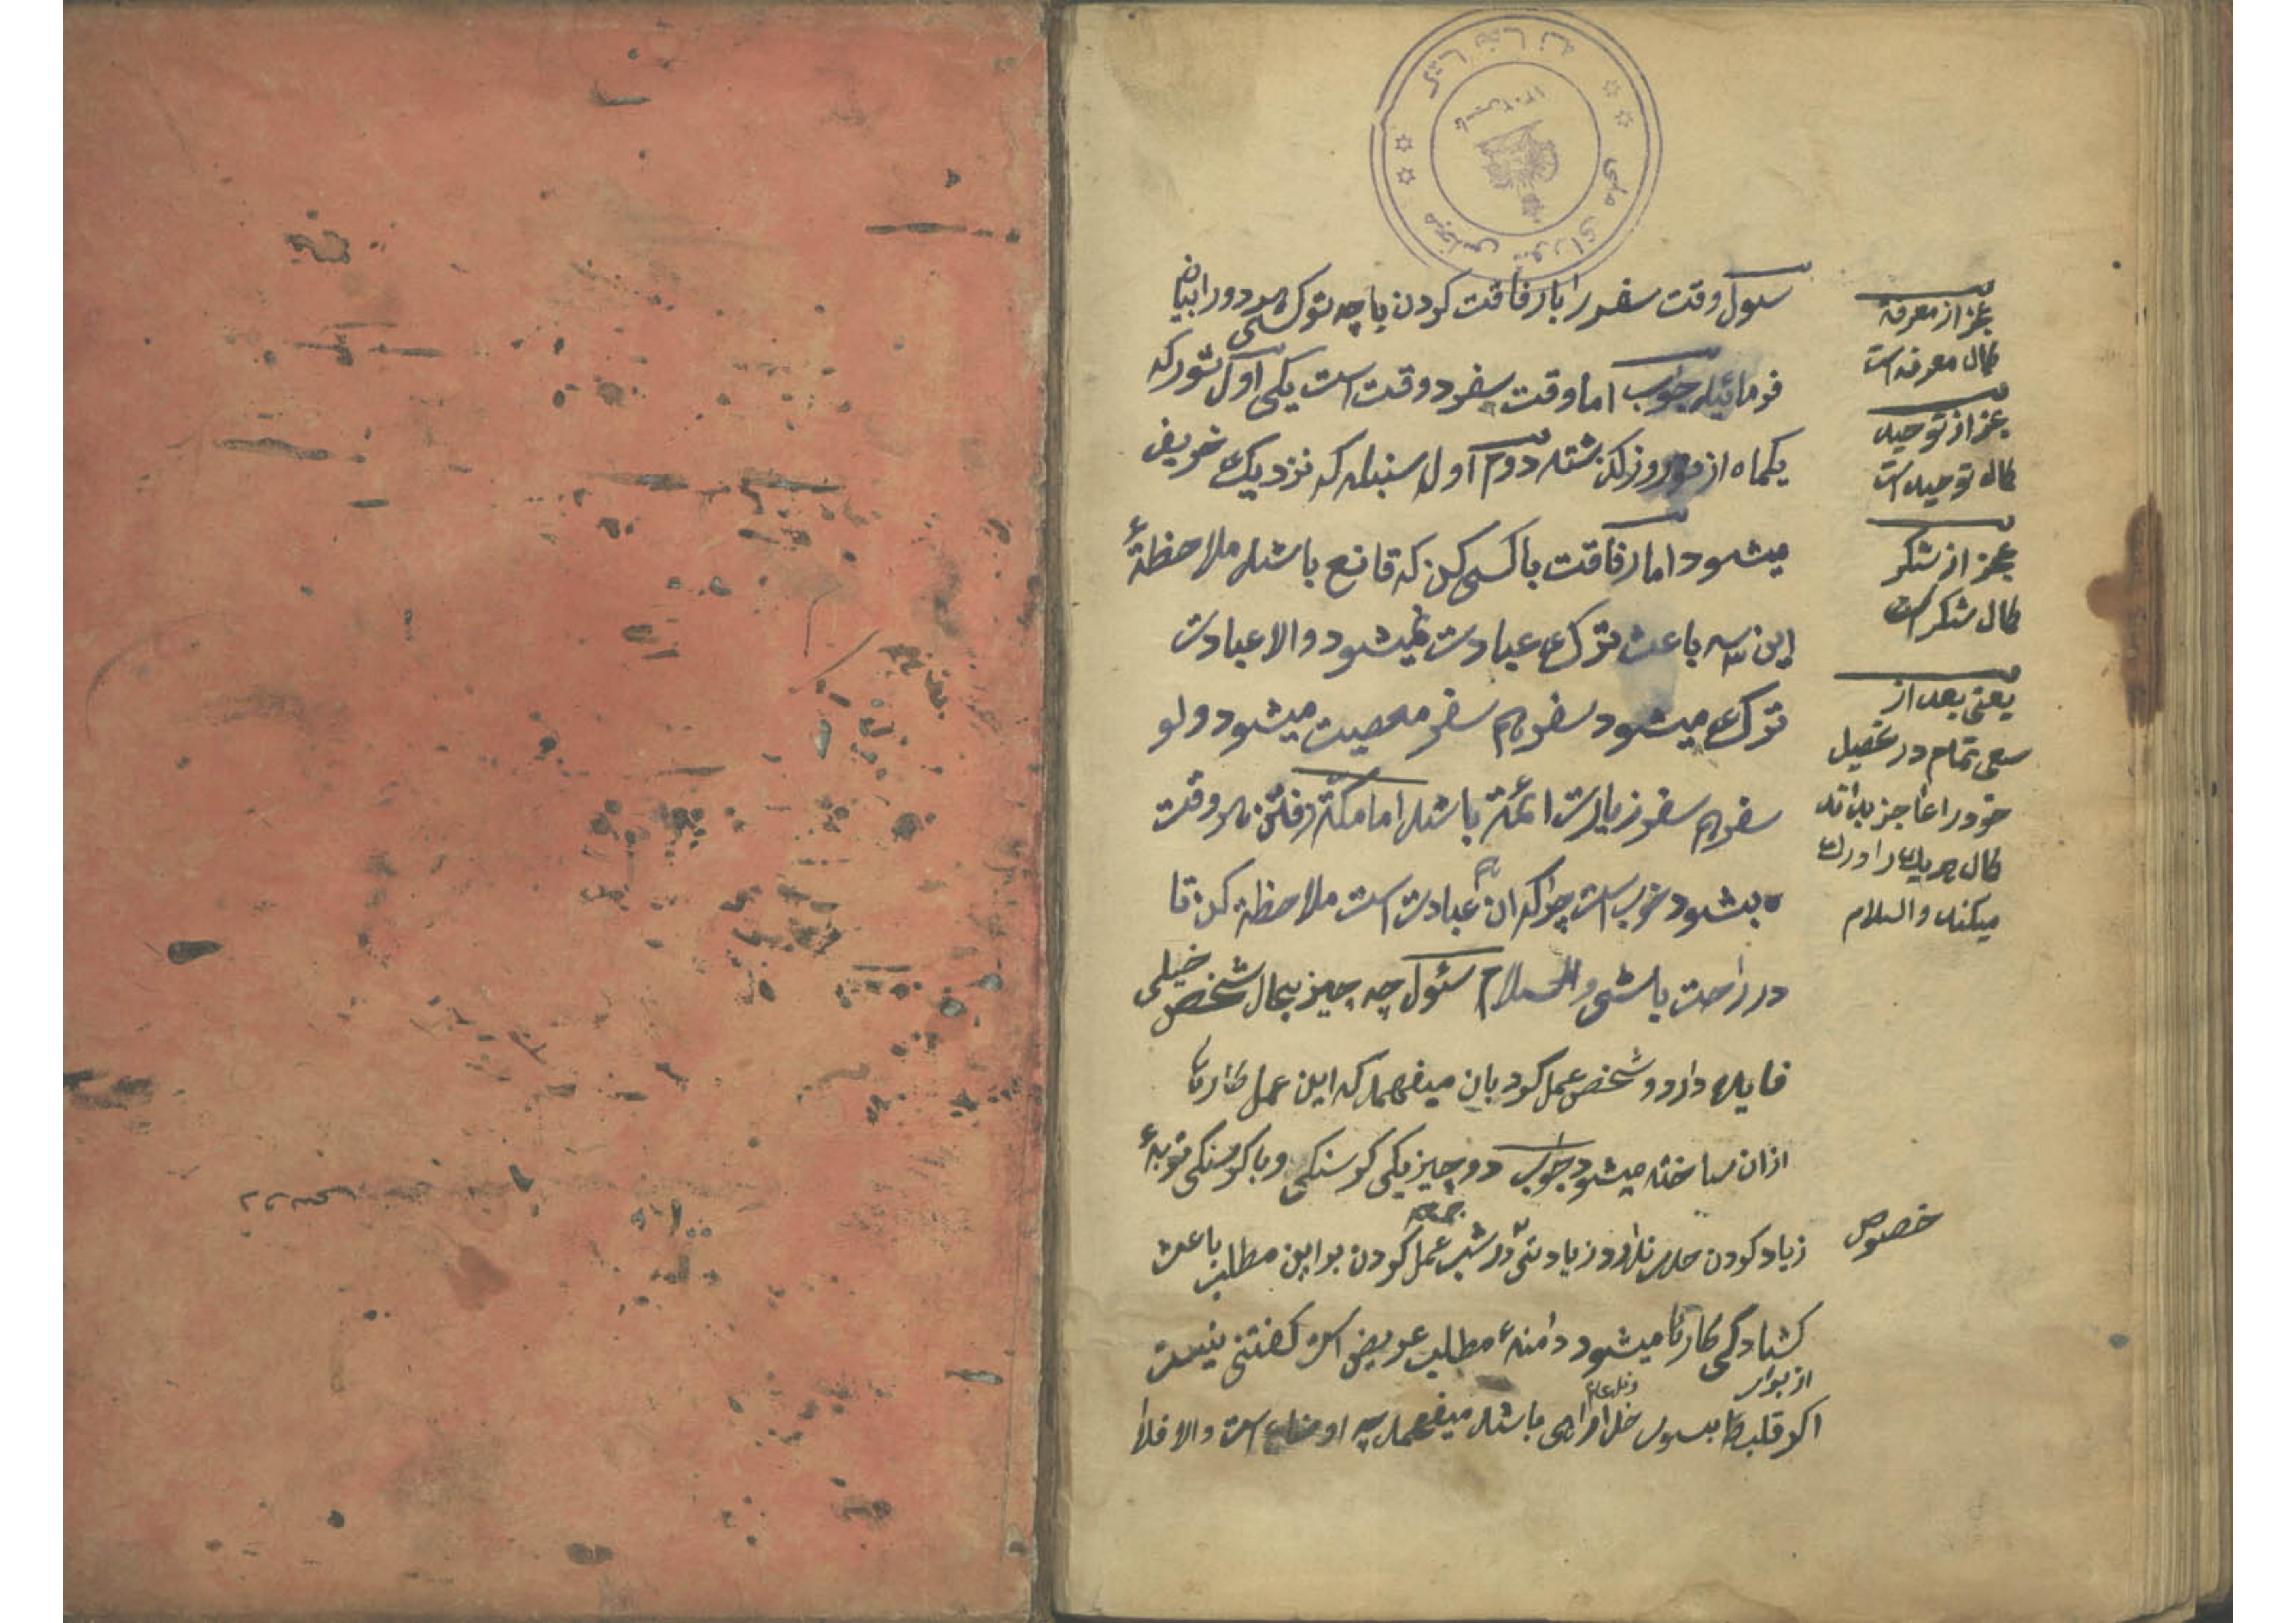 کتابخانه مجلس شورای ملی
سئول وقت سفر را با رفاقت کردن با چه نوکسی هر دو را بیان
فرمائید جواب اما وقت سفر دو وقت است یکی اول ثور که
یکماه از نوروز گذشته دوم اول سنبله که نزدیک خریف
میشود اما رفاقت با کسی کن که قانع باشد ملاحظهٔ
این سه باعث ترک عبادت نمیشود والا عبادت
ترک میشود سفر هم سفر معصیت میشود ولو
سفر هم سفر زیارت ائمّة باشد اما مکّه رفتن هر وقت
بشود خوب است چراکه ان هم عبادت است ملاحظه کن تا
در راحت باشی والسلام سئول چه چیز بحال شخص خیلی
فایده دارد و شخص عمل کرد بان میفهمد که این عمل کارها
ازان ساخته میشود جواب دو چیز یکی کرسنکی و با کرسنکی توبهٔ
زیاد کردن حد ندارد زیادتی در شب جمعه عمل کردن بر این مطلب باعث
کشادگی کارها میشود دامنهٔ مطلب عریض است کفتنی نیست
اگر قلب از برای خدا باشد میفهمد چه است والا فلا
عجز از معرفة
کمال معرفة است
عجز از توحید
کمال توحید است
عجز از شکر
کمال شکر است
یعنی بعد از
سعی تمام در تحصیل
خود را عاجز بداند
کمال هریک را درک
میکند والسلام
خصوص